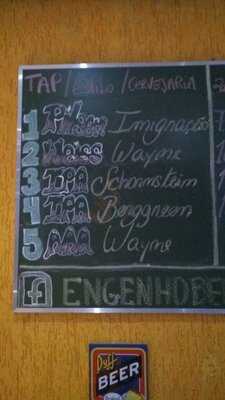 TAP / ESTILO / CERVEJARIA
1 Pilsen Imigração
2 Weiss Wayne
3 IPA Schornstein
4 IPA Berggreen
5 APA Wayne
ENGENHOBE
Duff
BEER